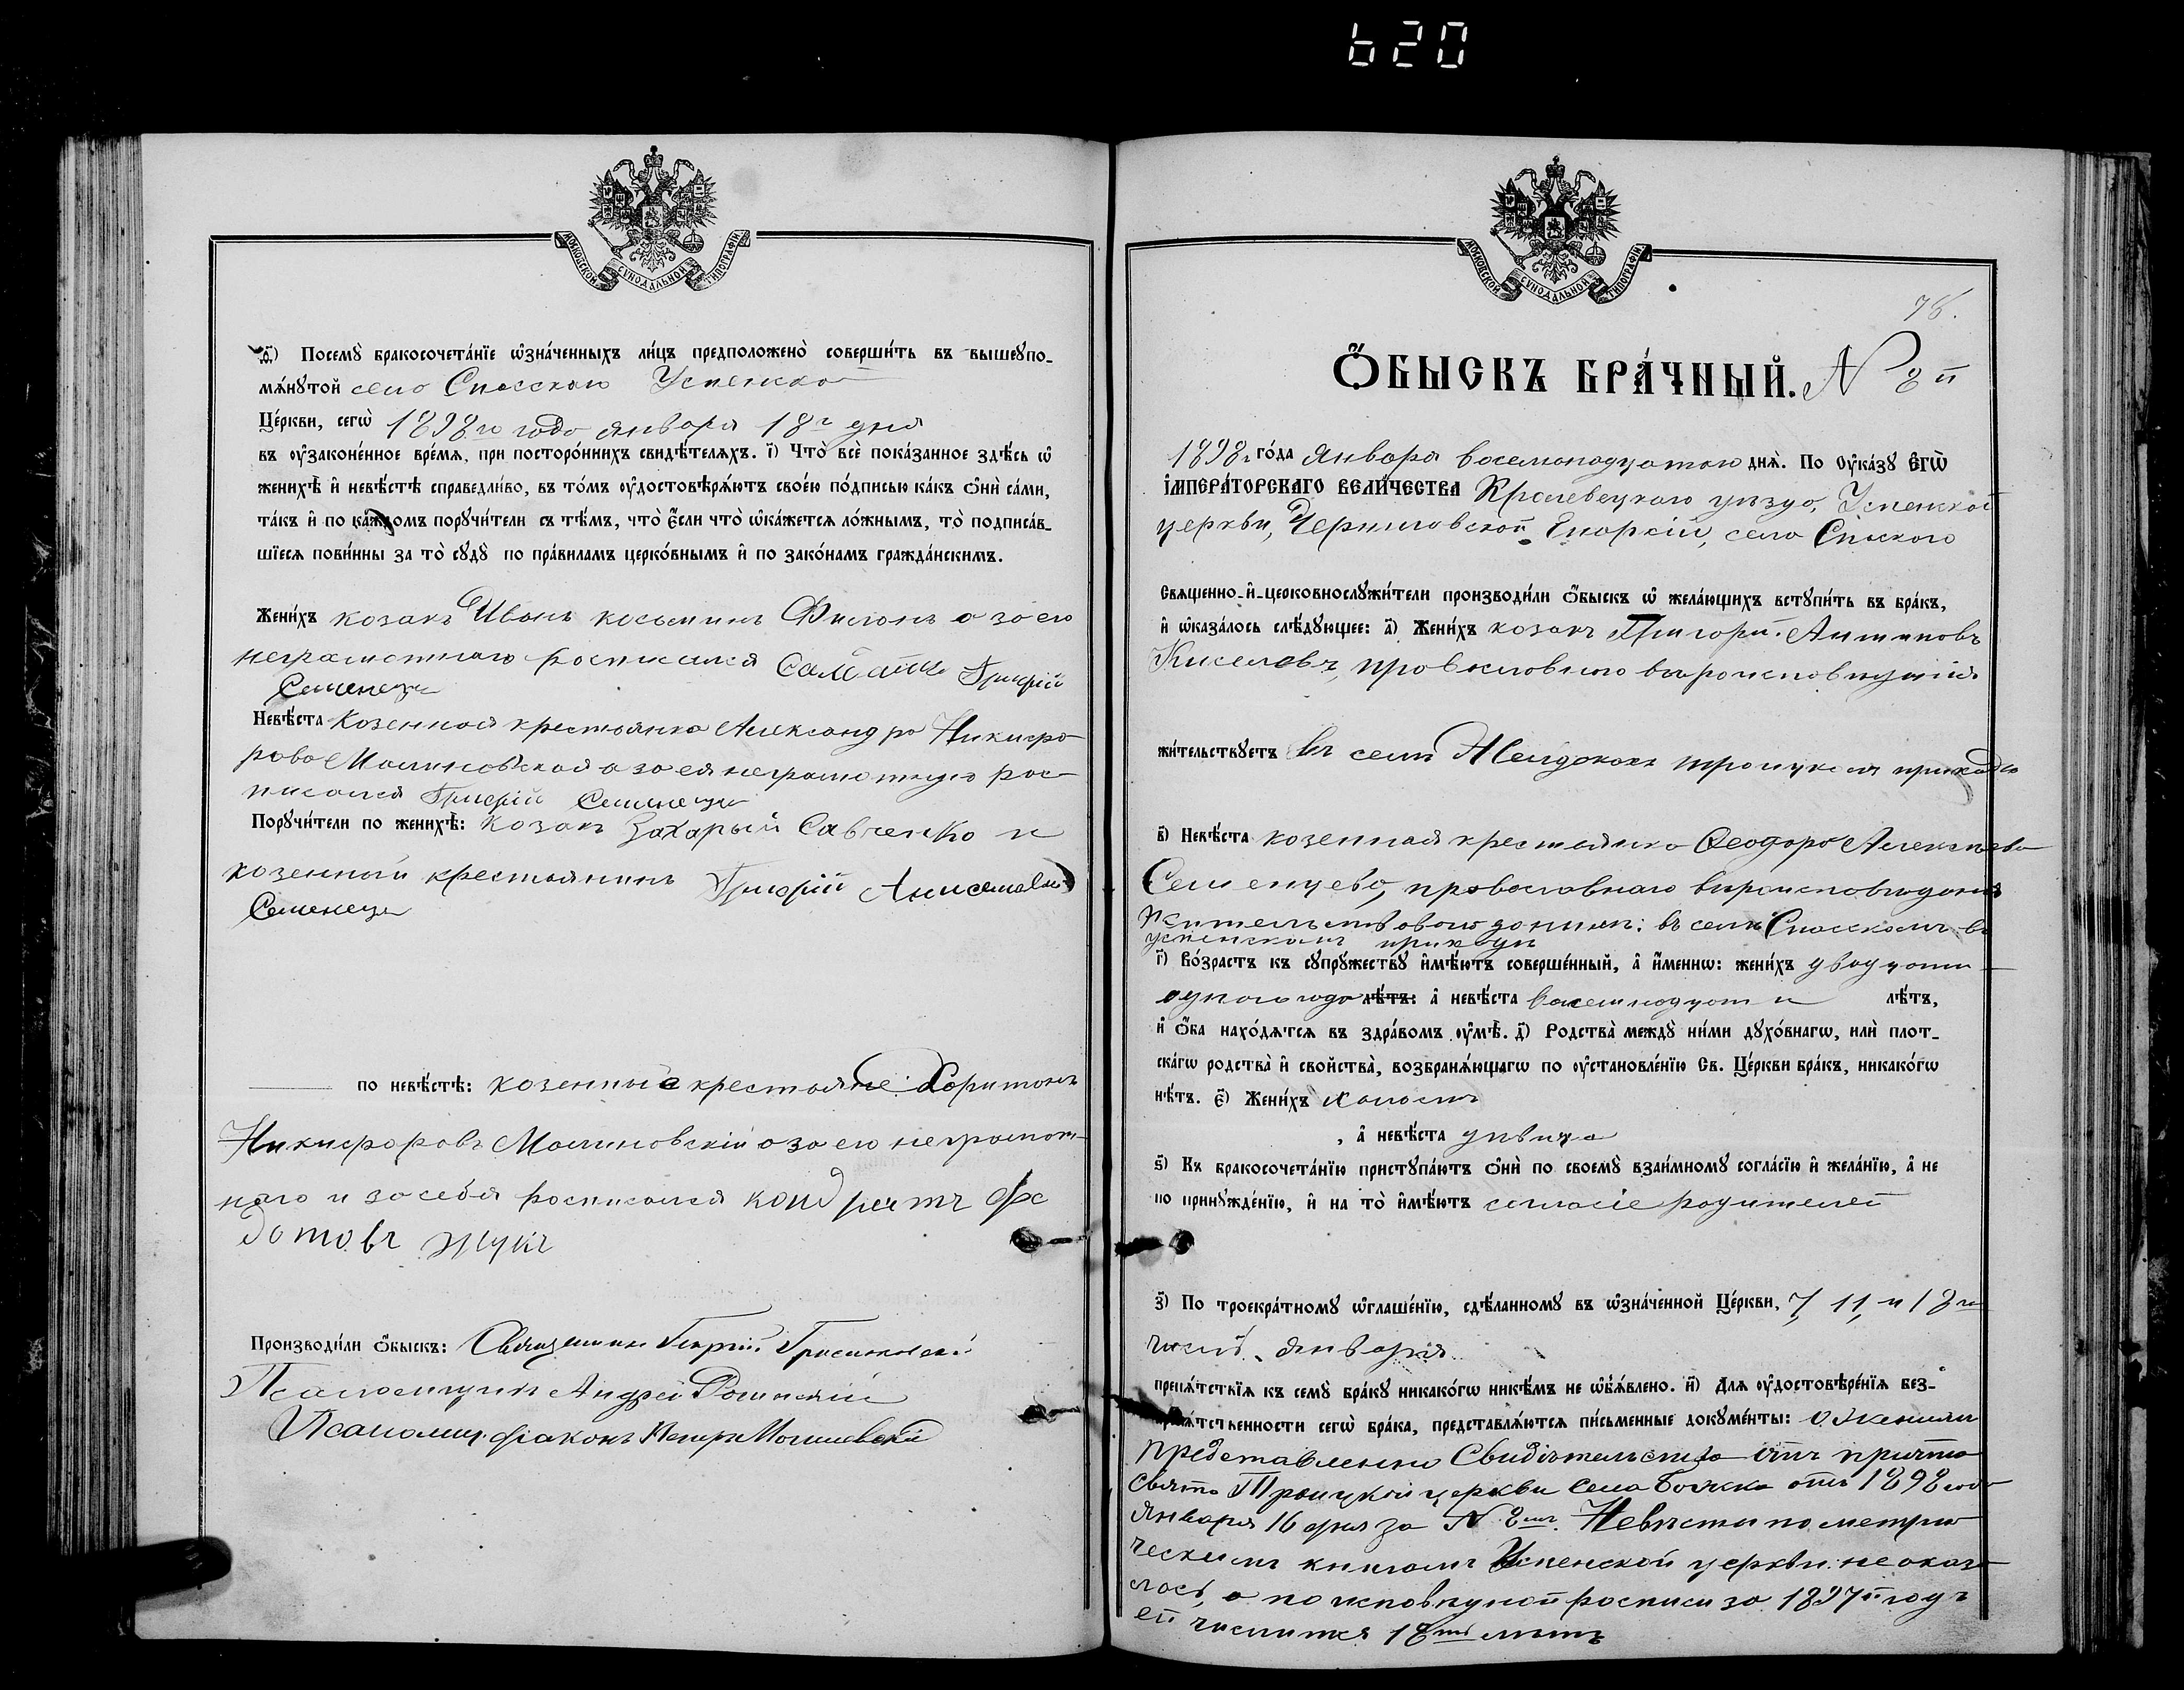 620
МОСКОВСКОЙ СУНОДАЛЬНОЙ ТИПОГРАФІИ
ѳ҃) Посемꙋ̀ бракосочета́нїе ѡ҆зна́ченныхъ ли́цъ предположено̀ соверши́ть въ вышеꙋпо-
мѧ́нꙋтой село Спасскаго Успенской
Це́ркви, сегѡ̀ 1898го года января 18го дня
въ ᲂу҆законе́нное вре́мѧ, при посторо́ннихъ свидѣ́телѧхъ. і҃) Что̀ всѐ пока́занное здѣ́сь ѡ҆
женихѣ̀ и҆ невѣ́стѣ справедли́во, въ то́мъ ᲂу҆достовѣрѧ́ютъ свое́ю по́дписью ка́къ ѻ҆нѝ са́ми,
та́къ и҆ по ка́ждомъ порꙋчи́тели съ тѣ́мъ, что̀ є҆́сли что̀ ѡ҆ка́жетсѧ ло́жнымъ, то̀ подписа́в-
шїесѧ пови́нны за то̀ сꙋдꙋ̀ по пра́виламъ церко́внымъ и҆ по зако́намъ гражда́нскимъ.
Жени́хъ козакъ Иванъ косьминъ Филонъ а за его
неграмотнаго росписался Григорій
Семенецъ
Невѣ́ста Козенная крестьянка Александра Никифо-
рова Малиновская а за ея неграмотную рос-
писался Григорій Семенецъ
Порꙋчи́тели по женихѣ̀: козакъ Захарый Савченко и
козенный крестьянинъ Григорій
Семенецъ
по невѣ́стѣ: козенные крестьяне: Харитонъ
Никифоровъ Малиновскій а за его неграмот-
наго и за себя росписался кондратъ Фе
дотовъ жукъ
Производи́ли ѻ҆́быскъ: Священникъ Георгій
Псаломщикъ Андрей
Псаломщ. діаконъ Петръ Могилевскій
МОСКОВСКОЙ СУНОДАЛЬНОЙ ТИПОГРАФІИ
78.
Ѻ҆́БЫСКЪ БРА́ЧНЫЙ. № 8й
1898г го́да Января восемнадцатаго днѧ̀. По ᲂу҆ка́зꙋ Є҆гѡ̀
І҆МПЕРА́ТОРСКАГО ВЕЛИ́ЧЕСТВА Кролевецкаго уѣзда, Успенской
церкви, Черниговской Епархіи, села Спаского
Свѧщенно-и҆-церковнослꙋжи́тели производи́ли ѻ҆́быскъ ѡ҆ жела́ющихъ встꙋпи́ть въ бра́къ,
и҆ ѡ҆каза́лось слѣ́дꙋющее: а҃) Жени́хъ козакъ Григорій Антиповъ
Киселевъ, православнаго вѣроисповѣданія
жи́тельствꙋетъ въ селѣ троицкомъ приходѣ
в҃) Невѣ́ста козенная крестьянка Ѳеодора Алексѣева
Семенцева, православнаго вѣроисповѣданія
жительствовало донынѣ: въ селѣ Спасскомъ въ
успенскомъ приходѣ
г҃) Во́зрастъ къ сꙋпрꙋ́жествꙋ и҆мѣ́ютъ соверше́нный, а҆ и҆́меннѡ: жени́хъ двадцати
одного года лѣ́тъ: а҆ невѣ́ста восемнадцати лѣ́тъ,
и҆ ѻ҆́ба нахо́дѧтсѧ въ здра́вомъ ᲂу҆мѣ̀. д҃) Родства̀ междꙋ̀ ни́ми дꙋхо́внагѡ, илѝ плот-
ска́гѡ родства̀ и҆ свойства̀, возбранѧ́ющагѡ по ᲂу҆становле́нїю Св. Це́ркви бра́къ, никако́гѡ
нѣ́тъ. є҃) Жени́хъ холостъ
, а҆ невѣ́ста дѣвица
ѕ҃) Къ бракосочета́нїю пристꙋпа́ютъ ѻ҆нѝ по своемꙋ̀ взаи́мномꙋ согла́сїю и҆ жела́нїю, а҆ не
по принꙋжде́нїю, и҆ на то̀ и҆мѣ́ютъ согласіе родителей
з҃) По троекра́тномꙋ ѡ҆глаше́нїю, сдѣ́ланномꙋ въ ѡ҆зна́ченной Це́ркви, 7, 11, и 18го
числъ января
препѧ́тствїѧ къ семꙋ̀ бра́кꙋ никако́гѡ никѣ́мъ не ѡ҆б̾ѧ́влено. и҃) Для ᲂу҆достовѣре́нїѧ без-
препѧ́тственности сегѡ̀ бра́ка, представлѧ́ютсѧ пи́сьменные докꙋме́нты: о женихѣ
представленно Свидѣтельство отъ причта
Свято Троицкой церкви села отъ 1898 года
Января 16 дня за № 8мъ. Невѣсты по метри
ческимъ книгамъ Успенской церкви не оказа
лось, а по исповѣдной росписи за 1897й годъ
ей числится 18ть лѣтъ